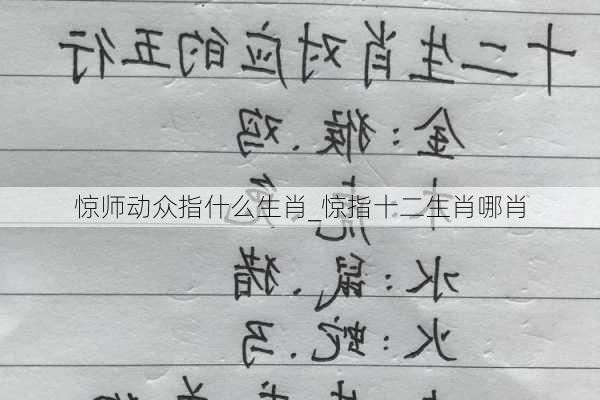 十二生肖对应的五行
金:猴、鸡
惊师动众指什么生肖_惊指十二生肖哪肖
水:鼠、猪
火:蛇、马